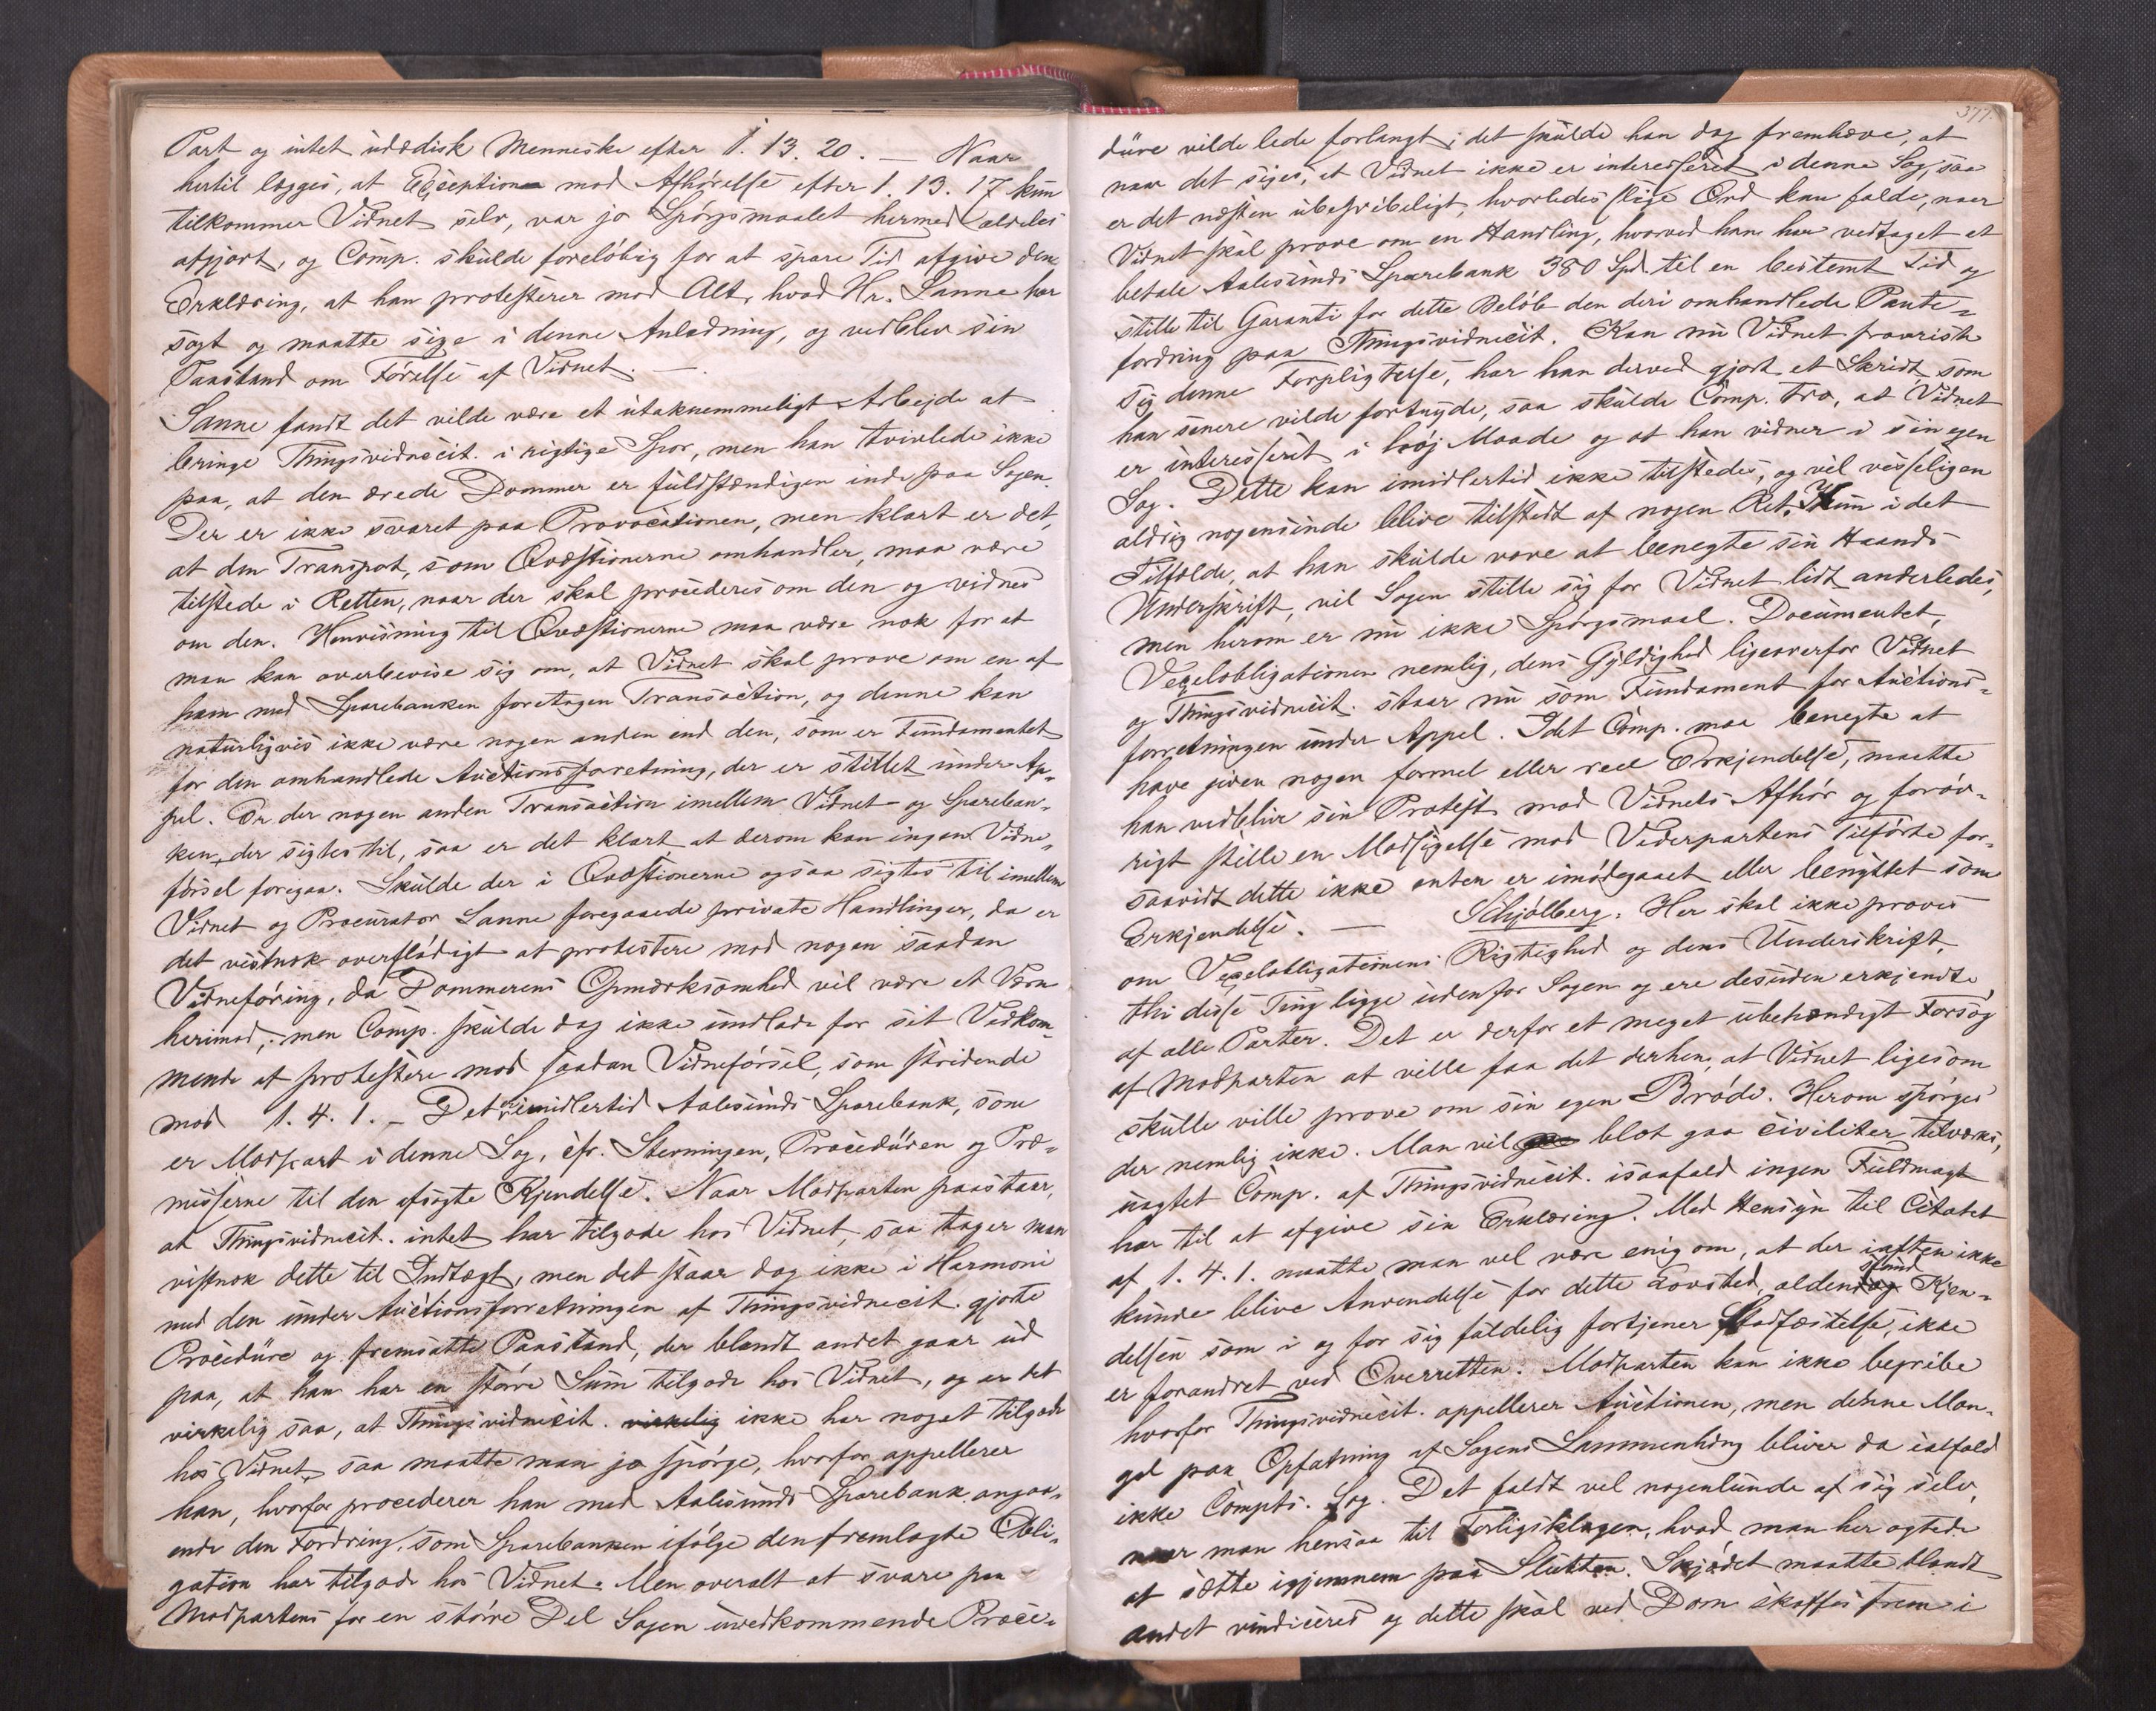 Part og intet udædisk Menneske efter 1. 13. 20. — Naar
hertil lægges, at Exception mod Afhørelse efter 1. 13. 17 kun
tilkommer Vidnet selv, var jo Spørgsmaalet hermed aldeles
afgjort, og Comp. skulde foreløbig for at spare Tid afgive den
Erklæring, at han protesterer mod Alt, hvad Hr. Sanne har
sagt og maatte sige i denne Anledning, og vedblev sin
Paastand om Førelse af Vidnet. —
Sanne fandt det vilde være et utaknemmeligt Arbejde at
bringe Thingsvidnecit. i rigtige Spor, men han tvivlede ikke
paa, at den ærede Dommer er fuldstændigen inde paa Sagen.
Der er ikke svaret paa Provocationen, men klart er det,
at den Transport, som Qvæstionerne omhandler, maa være
tilstede i Retten, naar der skal procederes om den og vidnes
om den. Henvisning til Qvæstionerne maa være nok for at
man kan overbevise sig om, at Vidnet skal prove om en af
ham med Sparebanken foretagen Transaction, og denne kan
naturligvis ikke være nogen anden end den, som er Fundamentet
for den omhandlede Auctionsforretning, der er stillet under Ap-
pel. Er der nogen anden Transaction imellem Vidnet og Spareban-
ken, der sigtes til, saa er det klart, at derom kan ingen Vidne-
førsel foregaa. Skulde der i Qvæstionerne ogsaa sigtes til imellem
Vidnet og Procurator Sanne foregaaede private Handlinger, da er
det vistnok overflødigt at protestere mod nogen saadan
Vidneføring, da Dommerens Opmærksomhed vil være et Værn
herimod, men Comp. skulde dog ikke undlade for sit Vedkom-
mende at protestere mod saadan Vidneførsel, som stridende
mod 1. 4. 1. – Det er imidlertid Aalesunds Sparebank, som
er Modpart i denne Sag, cfr. Stevningen, Proceduren og Præ-
misserne til den afsagte Kjendelse. Naar Modparten paastaar,
at Thingsvidnecit. intet har tilgode hos Vidnet, saa tager man
vistnok dette til Indtægt, men det staar dog ikke i Harmoni
med den under Auctionsforretningen af Thingsvidnecit. gjorte
Procedure og fremsatte Paastand, der blandt andet gaar ud
paa, at han har en større Sum tilgode hos Vidnet, og er det
virkelig saa, at Thingsvidnecit. virkelig ikke har noget tilgode
hos Vidnet, saa maatte man jo spørge, hvorfor appellerer
han, hvorfor procederer han med Aalesunds Sparebank angaa-
ende den Fordring, som Sparebanken ifølge den fremlagte Obli-
gation har tilgode hos Vidnet. Men overalt at svare paa
Modpartens for en større Del Sagen uvedkommende Proce-
377.
dure vilde lede forlangt; det skulde han dog fremhæve, at
naar det siges, at Vidnet ikke er interesseret i denne Sag, saa
er det næsten ubegribeligt, hvorledes slige Ord kan falde, naar
Vidnet skal prove om en Handling, hvorved han har vedtaget at
betale Aalesunds Sparebank 380 Spd. til en bestemt Tid og
stille til Garanti for dette Beløb den deri omhandlede Pante-
fordring paa Thingsvidnecit. Kan nu Vidnet fravriste
sig denne Forpligtelse, har han derved gjort et Skridt, som
han senere vilde fortryde, saa skulde Comp. tro, at Vidnet
er interesseret i høj Maade og at han vidner i sin egen
Sag. Dette kan imidlertid ikke tilstedes, og vil visseligen
aldrig nogensinde blive tilstedt af nogen Ret. Kun i det
Tilfælde, at han skulde vove at benegte sin Haands
Underskrift, vil Sagen stille sig for Vidnet lidt anderledes,
men herom er nu ikke Spørgsmaal. Documentet,
Vexelobligationen nemlig, dens Gyldighed ligeoverfor Vidnet
og Thingsvidnecit. staar nu som Fundament for Auctions-
forretningen under Appel. Idet Comp. maa benegte at
have given nogen formel eller reel Erkjendelse, maatte
han vedblive sin Protest mod Vidnets Afhør og forøv-
rigt stille en Modsigelse mod Vederpartens Tilførte for-
saavidt dette ikke enten er imødegaaet eller benyttet som
Erkjendelse. — Schjølberg. Her skal ikke proves
om Vexelobligationens Rigtighed og dens Underskrift,
thi disse Ting ligge udenfor Sagen og ere desuden erkjendte
af alle Parter. Det er derfor et meget ubehændigt Forsøg
af Modparten at ville faa det derhen, at Vidnet ligesom
skulle ville prove om sin egen Brøde. Herom spørges
der nemlig ikke. Man vil blot gaa civiliter tilværks,
uagtet Comp. af Thingsvidnecit. isaafald ingen Fuldmagt
har til at afgive sin Erklæring. Med Hensyn til Citatet
af 1. 4. 1. maatte man vel være enig om, at der iaften ikke
kunde blive Anvendelse for dette Lovsted, aldenstund Kjen-
delsen som i og for sig fuldelig fortjener Stadfæstelse, ikke
er forandret ved Overretten. Modparten kan ikke begribe
hvorfor Thingsvidnecit. appellerer Auctionen, men denne Man-
gel paa Opfatning af Sagens Sammenhæng bliver da ialfald
ikke Compts. Sag. Det faldt vel nogenlunde af sig selv,
naar man hensaa til Forligsklagen, hvad man her agtede
at sætte igjennem paa Slutten. Skjødet maatte blandt
andet vindiceres og dette skal ved Dom skaffes frem i